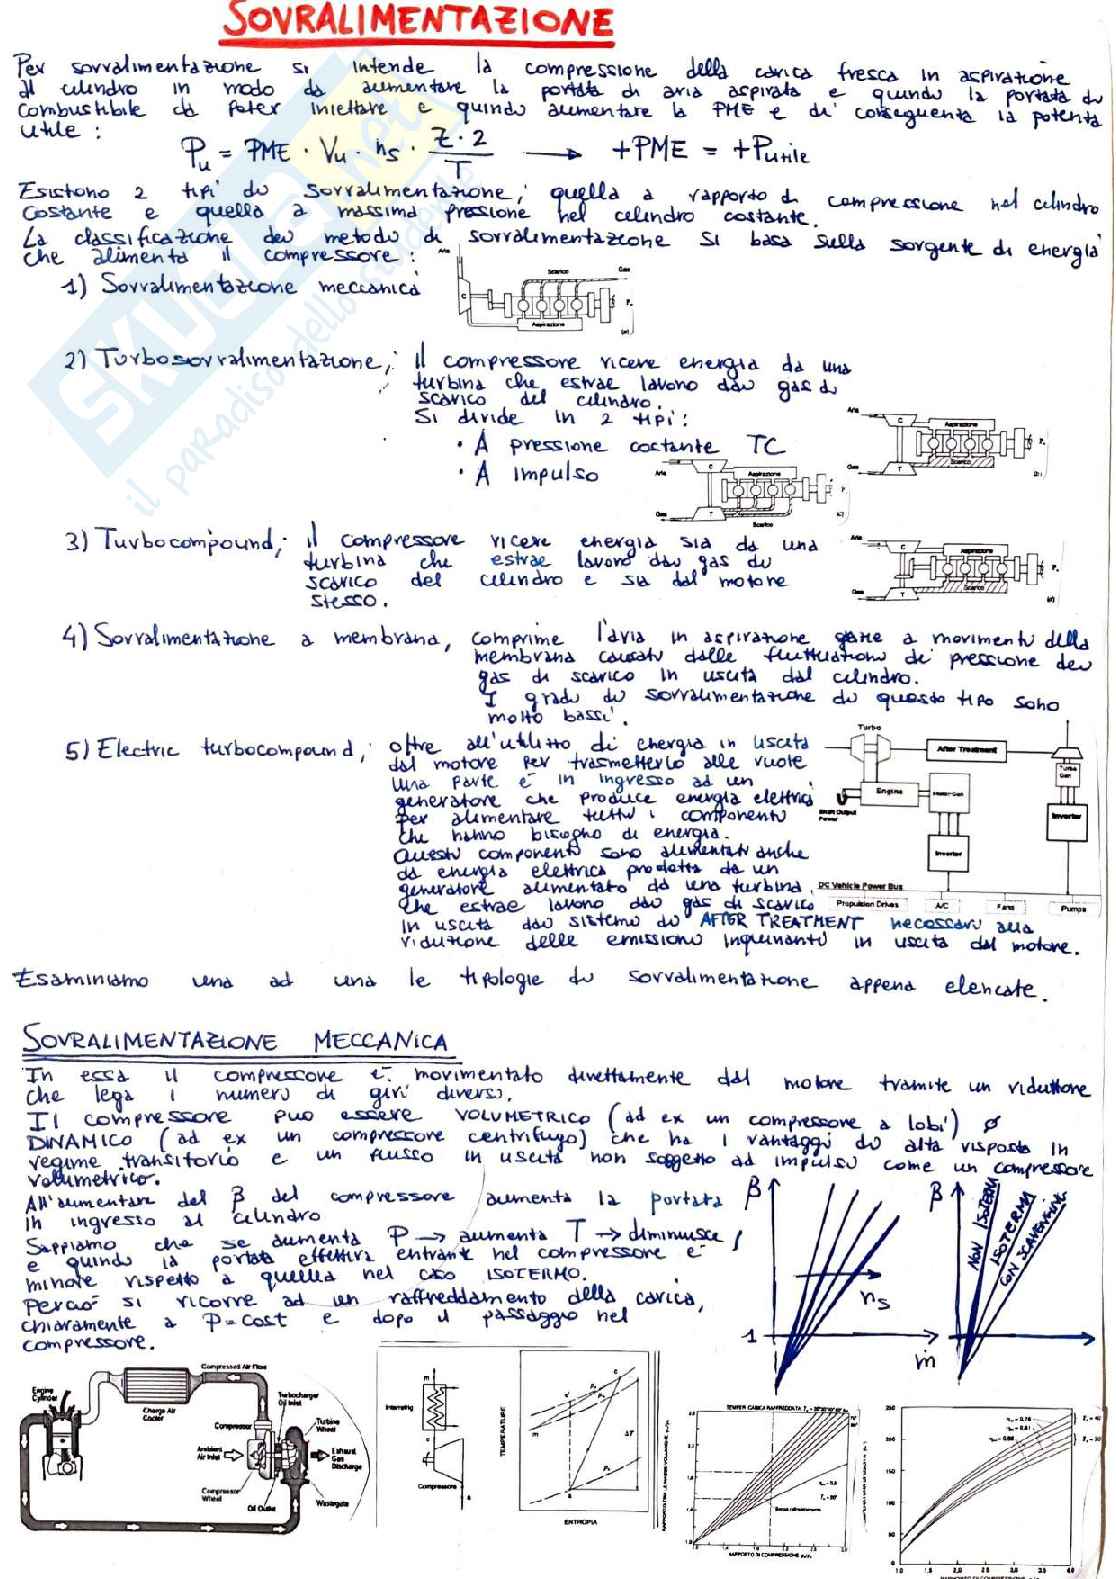 SOVRALIMENTAZIONE
Per sovralimentazione si intende la compressione della carica fresca in aspirazione
al cilindro in modo da aumentare la portata di aria aspirata e quindi la portata di
combustibile da poter iniettare e quindi aumentare la PME e di conseguenza la potenza
utile :
Pu = PME · Vu · ns · Z · 2 / T → +PME = +Putile
Esistono 2 tipi di sovralimentazione, quella a rapporto di compressione nel cilindro
costante e quella a massima pressione nel cilindro costante.
La classificazione dei metodi di sovralimentazione si basa sulla sorgente di energia
che alimenta il compressore :
1) Sovralimentazione meccanica
Aria
Scarico
Gas
C
Aspirazione
2) Turbosovralimentazione, il compressore riceve energia da una
turbina che estrae lavoro dai gas di
scarico del cilindro.
Si divide in 2 tipi :
· A pressione costante TC
· A impulso
Aria
C
Aspirazione
Gas
T
Scarico
Aria
C
Aspirazione
Gas
T
Scarico
3) Turbocompound, il compressore riceve energia sia da una
turbina che estrae lavoro dai gas di
scarico del cilindro e sia dal motore
stesso.
Aria
C
Aspirazione
Gas
T
Scarico
4) Sovralimentazione a membrana, comprime l'aria in aspirazione grazie a movimenti della
membrana causati dalle fluttuazioni di pressione dei
gas di scarico in uscita dal cilindro.
I gradi di sovralimentazione di questo tipo sono
molto bassi.
5) Electric turbocompound, oltre all'utilizzo di energia in uscita
dal motore per trasmetterlo alle ruote
una parte è in ingresso ad un
generatore che produce energia elettrica
per alimentare tutti i componenti
che hanno bisogno di energia.
Questi componenti sono alimentati anche
da energia elettrica prodotta da un
generatore alimentato da una turbina
che estrae lavoro dai gas di scarico
in uscita dai sistemi di AFTER TREATMENT necessari alla
riduzione delle emissioni inquinanti in uscita dal motore.
Turbo
After Treatment
Turbo
Gen
Engine
Motor-Gen
Output
Power
Inverter
Inverter
DC Vehicle Power Bus
Propulsion Drives
A/C
Fans
Pumps
Esaminiamo una ad una le tipologie di sovralimentazione appena elencate.
SOVRALIMENTAZIONE MECCANICA
In essa il compressore è movimentato direttamente dal motore tramite un riduttore
che lega i numeri di giri diversi.
Il compressore può essere VOLUMETRICO (ad ex un compressore a lobi) o
DINAMICO (ad ex un compressore centrifugo) che ha i vantaggi di alta risposta in
regime transitorio e un flusso in uscita non soggetto ad impulsi come un compressore
volumetrico.
All'aumentare del β del compressore aumenta la portata
in ingresso al cilindro
Sappiamo che se aumenta P → aumenta T → diminuisce ρ
e quindi la portata effettiva entrante nel compressore è
minore rispetto a quella nel caso ISOTERMO.
Perciò si ricorre ad un raffreddamento della carica,
chiaramente a P=cost e dopo il passaggio nel
compressore.
β
ns
1
ṁ
β
NON ISOTERMA
ISOTERMA
CON SCAVENGING
Compressed Air Flow
Engine
Cylinder
Charge Air
Cooler
Turbocharger
Oil Inlet
Compressor
Turbine
Wheel
Ambient
Air Inlet
Exhaust
Gas
Discharge
Compressor
Wheel
Oil Outlet
Wastegate
m
Interrefrig
Compressore
TEMPERATURE
ENTROPIA
ΔT
TEMPER. CARICA RAFFREDDATA
RAPPORTO DI COMPRESSIONE
250
200
150
100
50
0
1.0
1.5
2.0
2.5
3.0
3.5
4.0